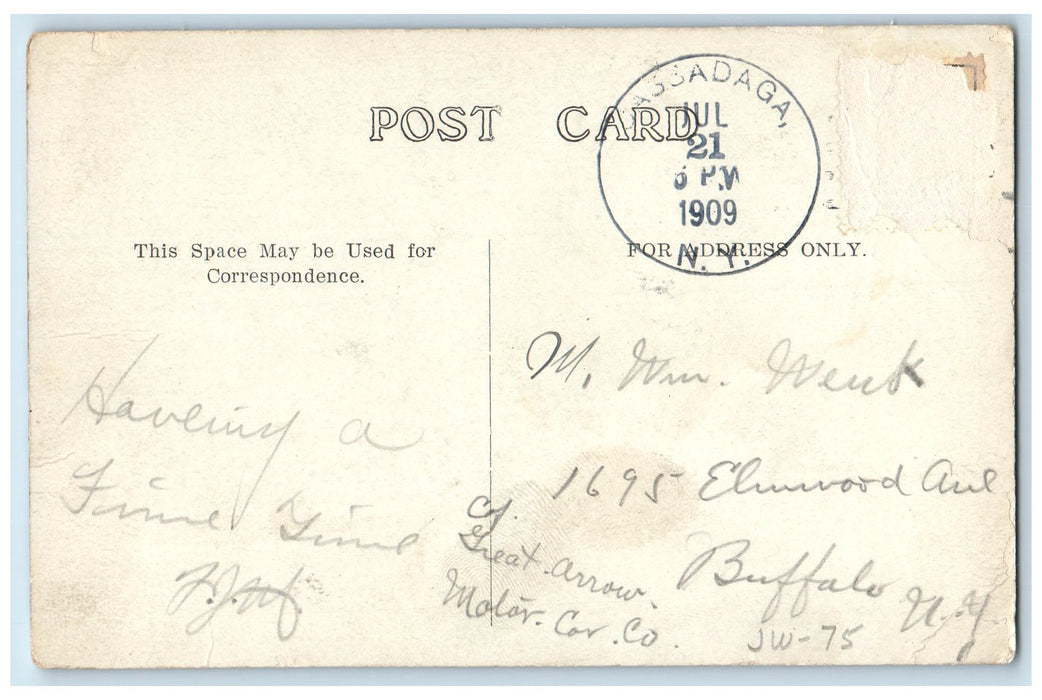 POST CARD
ASSADAGA,
JUL
21
6 PM
1909
N. Y.
This Space May be Used for
Correspondence.
FOR ADDRESS ONLY.
Haveing a
Fine Time
M. Wm. Wenk
1695 Elmwood Ave
Buffalo N.Y.
Great. Arrow.
Motor. Car. Co.
JW-75